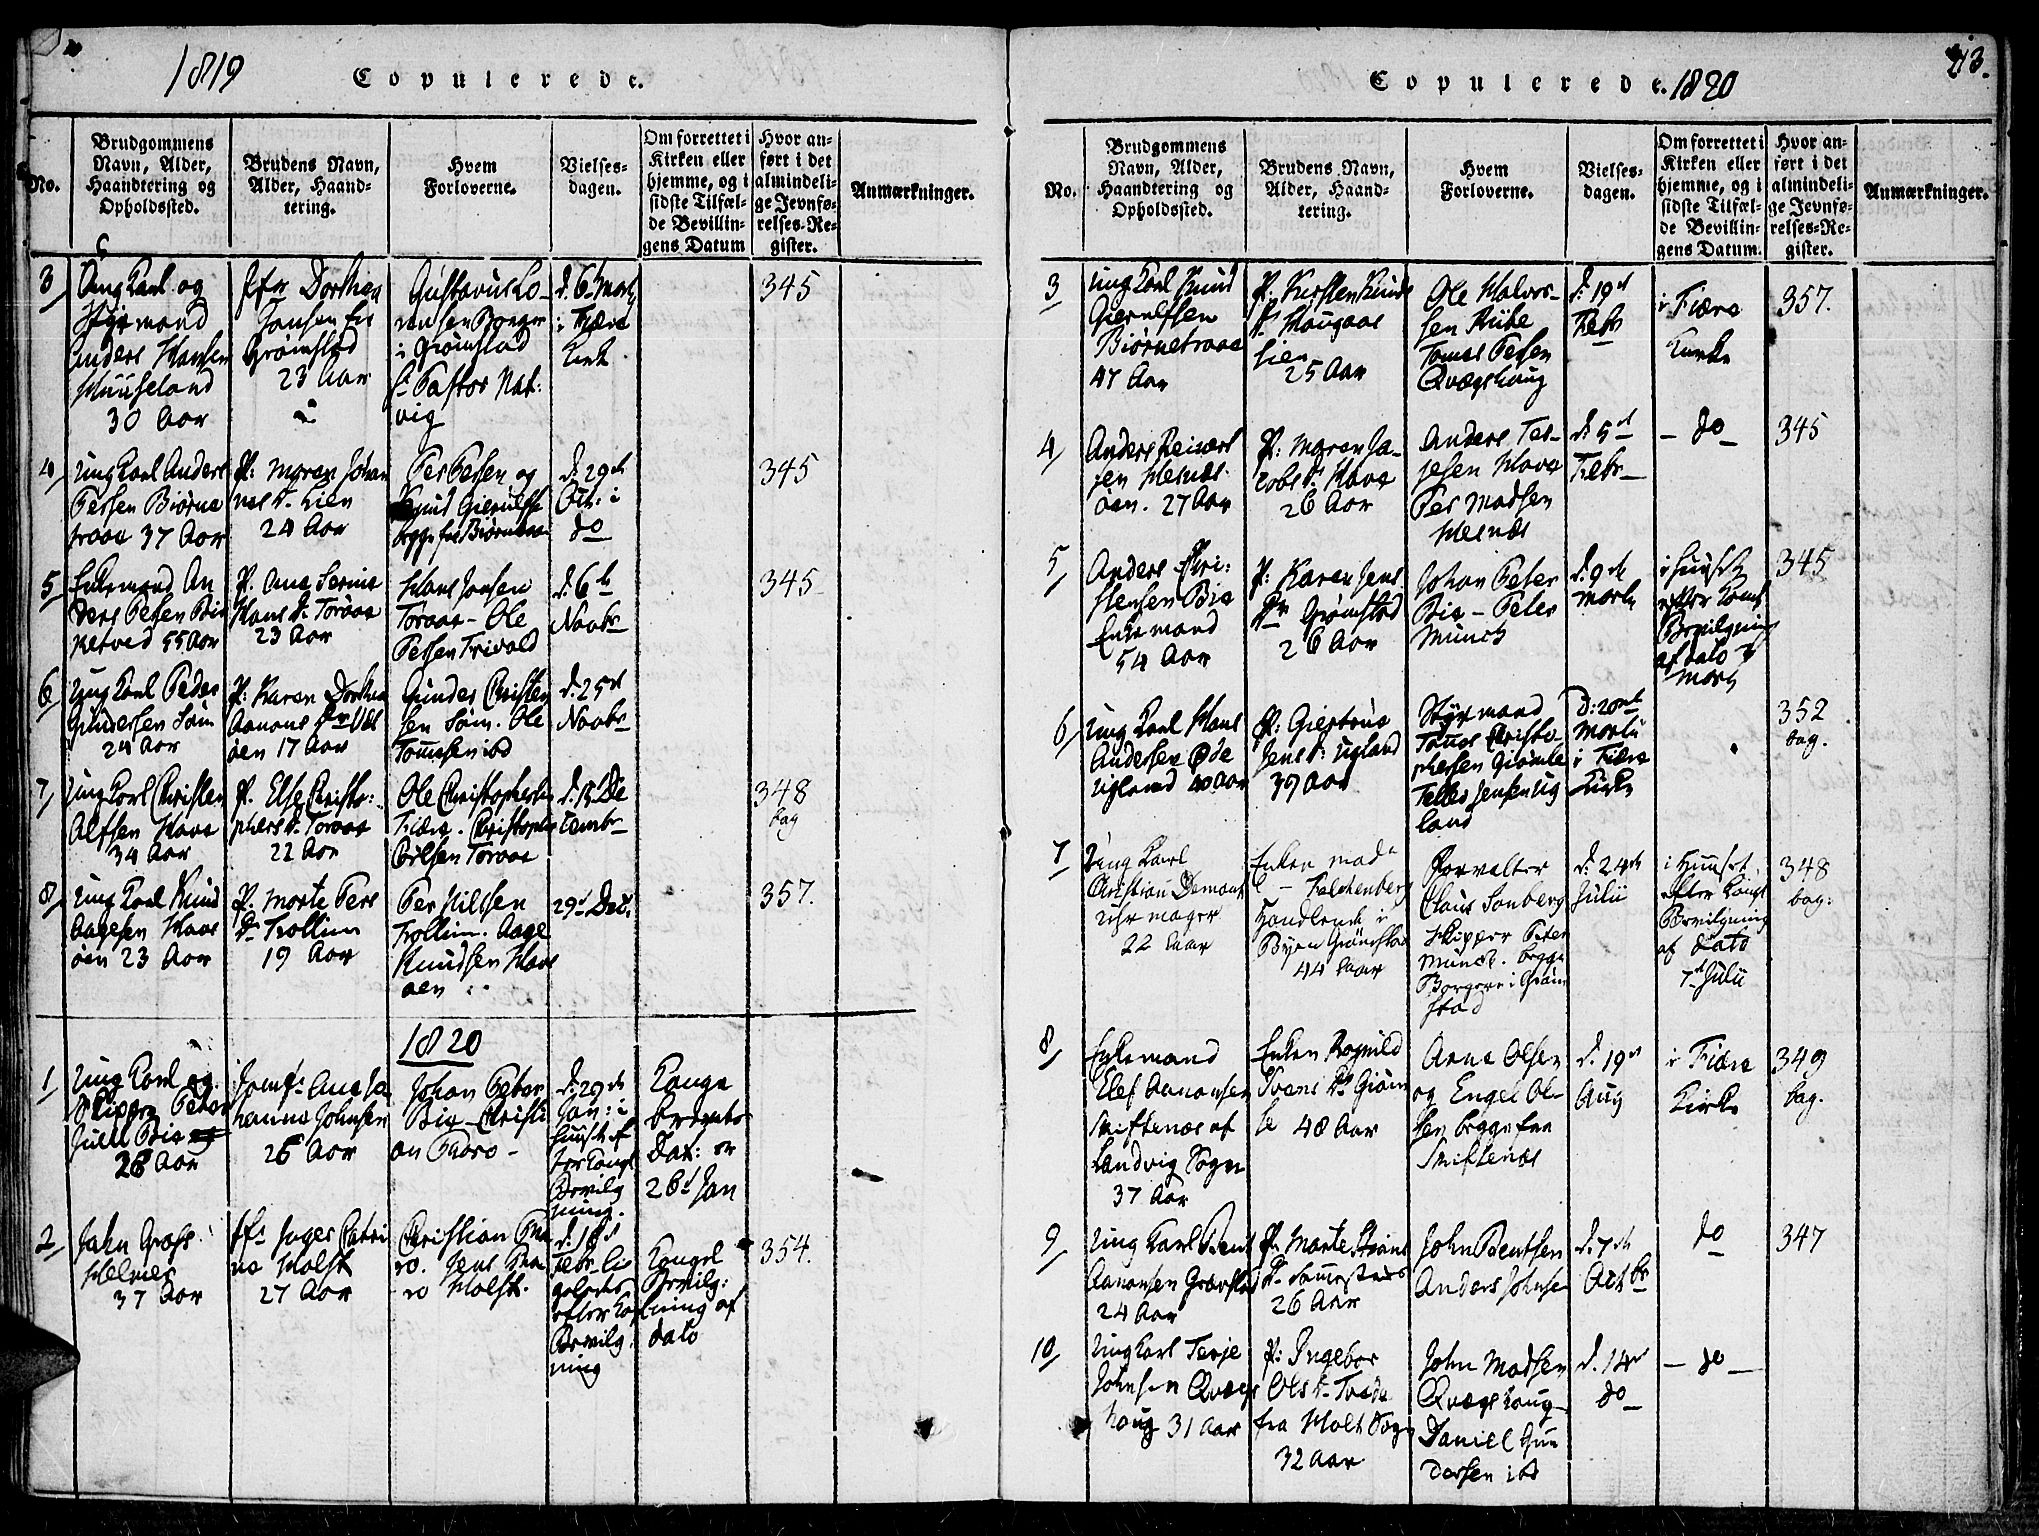 1819
Copulerede.
No.
Brudgommens
Navn, Alder,
Haandtering og
Opholdssted.
Brudens Navn,
Alder, Haand-
tering.
Hvem
Forloverne.
Vielses-
dagen.
Om forrettet i
Kirken eller
hjemme, og i
sidste Tilfæl-
de Bevillin-
gens Datum
Hvor an-
ført i det
almindeli-
ge Jevnfø-
relses-Re-
gister.
Anmærkninger.
3
Ung Karl og
Styrmand
Anders Hansen
30 Aar
Dorthea
Jansen fra
Grömstad
23 Aar
Gustavus Lo-
rensen Borger
i Grömstad
Pastor Nat-
vig
d. 6te Martz
i Fjære
Kirk
345
4
Ung Karl Anders
Persen Biørne
traae 37 Aar
P: Maren Johan
nes D. Lien
24 Aar
Per Persen og
Knud Gierulfse
begge fra Biørnetraae
d. 29de
Oct: i
do
345
5
Enkemand An
ders Persen Bie
ketved 55 Aar
P. Ane Serine
Hans D. Toraae
23 Aar
Hans Jansen
Toraae - Ole
Persen Trivold
d. 6te
Novbr
345
6
Ung Karl Peder
Gundersen Søm
24 Aar
P: Karen Dorthea
Aanons Dr Ves
øen 17 Aar
Gunder Christen
sen Søm. Ole
Tomesen ibd
d. 25de
Novbr
7
Ung Karl Christen
Alfsen Haae
34 Aar
P. Else Christo-
phers D. Toraae
22 Aar
Ole Christophersen
Fiære. Christopher
Toraae
d. 15 De
cembr
348
bag
8
Ung Karl Knud
Aagesen Haae
øen 23 Aar
P. Marte Pers
D. Trollim
19 Aar
Per Nilsen
Trollim. Aage
Knudsen Haae
øen
29d Dec.
357.
1820
1
Ung Karl og
Skipper Peter
Juell Bie
26 Aar
Jomfr: Ane Jo
hanna Johnsen
26 Aar
Johan Peter
Bie - Christi
an Thoro -
d. 29de
Jan: i
Huuset ef
ter Kongl
Bevilg
ning.
Konge
brevets
Dat: er
26d Jan
2
Jahn Grafs
37 Aar
Jfr Inger Catri
ne Holst
27 Aar
Christian Tho
ro. Jens Tho
ro Holst.
d. 18d
Febr
efter Kgl
Bevilg
ning
Kongel
Bevilg:
ning af
dato
354.
Copulerede.
1820
213.
No.
Brudgommens
Navn, Alder,
Haandtering og
Opholdssted.
Brudens Navn,
Alder, Haand-
tering.
Hvem
Forloverne.
Vielses-
dagen.
Om forrettet i
Kirken eller
hjemme, og i
sidste Tilfæl-
de Bevillin-
gens Datum.
Hvor an-
ført i det
almindeli-
ge Jevnfø-
relses-Re-
gister.
Anmærkninger.
3
Ung Karl Knud
Gierulfsen
Biørnetraae
47 Aar
P. Kirsten Knuds
D. Haugaas
Lien
25 Aar
Ole Halvor-
sen Ribe
Tomas Persen
Qvægshaug
d: 19d
Febr
i Fiære
Kirke
357.
4
Anders Reinert
sen Hesnes-
øen. 27 Aar
P: Maren Ja-
cobs D. Haae
26 Aar
Anders Ter-
jesen Haae
Per Madsen
Hesnæs
d. 5d
Febr
- do -
345
5
Anders Chri-
stensen Bie
Enkemand
54 Aar
P: Karen Jens
Dr Grömstad
26 Aar
Johan Peter
Bie - Peter
Munch
d. 9de
Martz
i Huuset
efter Kongl
Bevilgning
af dato 7
Martz
345
6
Ung Karl Hans
Andersen Øde
Ugland 40 Aar
P: Giertrue
Jens D: Ugland
39 Aar
Styrmand
Tomes Christo-
phersen Grömle
Telles Jensen Ug
land
D: 20nde
Martii
i Fiære
Kirke
352
bag.
7
Ung Karl
Christian Demant
Uhrmager
22 Aar
Enken Made
- Falchenberg
Handlende i
Byen Grömstad
44 Aar
Forvalter
Claus Sonberg
Skipper Peter
Munch. begge
Borgere i Gröm
stad
d: 24de
Julii
i Huuset
efter Kongl
Bevilgning
af Dato
7d Julii
348
bag:
8
Enkemand
Elef Aanonsen
Skiftenæs af
Landvig Sogn
37 Aar
Enken Ragnild
Svens D. Gröm
le 48 Aar
Arne Olsen
og Engel Ol-
sen begge fra
Skiftenæs
d. 19d
Aug
i Fiære
Kirke
349
bag.
9
Ung Karl Bent
Aanonsen Grefstad
24 Aar
P. Marte Steens
D.
26 Aar
John Bentsen
Anders Johnsen
d. 7de
Octbr
do
347
10
Ung Karl Terje
Johnsen Qvægs
haug 31 Aar
P: Ingebor
Ols D. Tvede
fra Holt Sogn
32 Aar
John Madsen
Qvægshaug
Daniel Gun
dersen ibd
d. 14d
do
- do -